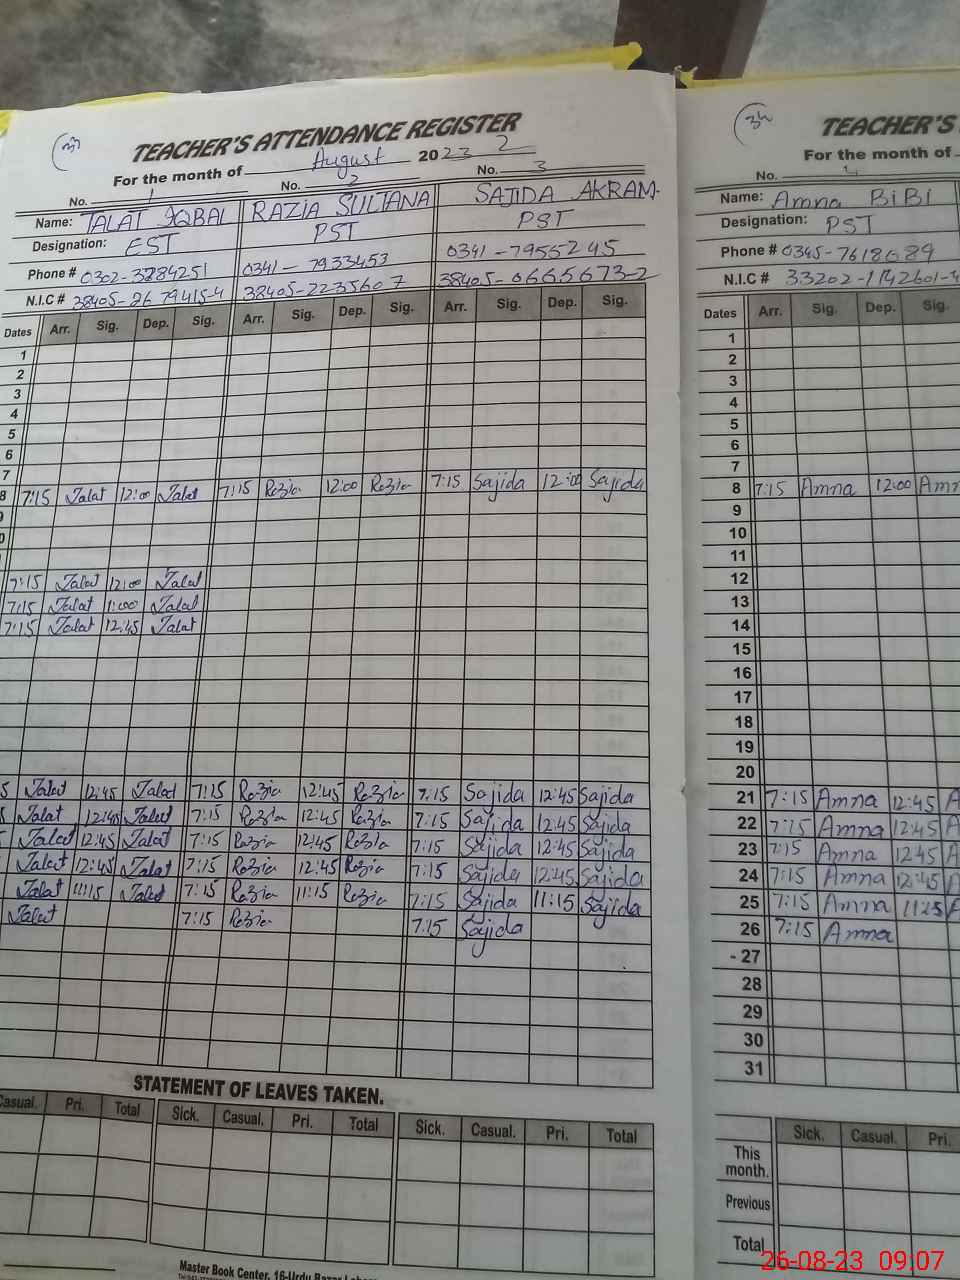 TEACHER'S ATTENDANCE REGISTER
For the month of August 2023 2
No. 1 No. 2 No. 3
Name: TALAT IQBAL RAZIA SULTANA SAJIDA AKRAM.
Designation: EST PST PST
Phone # 0341-7933453 0341-7955245
N.I.C # 38405-2679415-4 38405-2235607 38405-6665673-2
Dates Arr. Sig. Dep. Sig. Arr. Sig. Dep. Sig. Arr. Sig. Dep. Sig.
1
2
3
4
5
6
7
8 7:15 Talat 12:00 Talat 7:15 Razia 12:00 Razia 7:15 Sajida 12:00 Sajida
7:15 Talat 12:00 Talat
7:15 Talat 1:00 Talat
7:15 Talat 12:45 Talat
5 Talat 12:45 Talat 7:15 Razia 12:45 Razia 7:15 Sajida 12:45 Sajida
Talat 12:45 Talat 7:15 Razia 12:45 Razia 7:15 Sajida 12:45 Sajida
Talat 12:45 Talat 7:15 Razia 12:45 Razia 7:15 Sajida 12:45 Sajida
Talat 12:45 Talat 7:15 Razia 12:45 Razia 7:15 Sajida 12:45 Sajida
Talat 11:15 Talat 7:15 Razia 11:15 Razia 7:15 Sajida 11:15 Sajida
Talat 7:15 Razia 7:15 Sajida
STATEMENT OF LEAVES TAKEN.
Casual. Pri. Total Sick. Casual. Pri. Total Sick. Casual. Pri. Total
Master Book Center, 16-Urdu Bazar
TEACHER'S
For the month of
No.
Name: Amna BiBi
Designation: PST
Phone # 0345-7618689
N.I.C # 33202-1142601-
Dates Arr. Sig. Dep. Sig.
1
2
3
4
5
6
7
8 7:15 Amna 12:00 Amn
9
10
11
12
13
14
15
16
17
18
19
20
21 7:15 Amna 12:45 A
22 7:15 Amna 12:45 A
23 7:15 Amna 12:45 A
24 7:15 Amna 12:45 A
25 7:15 Amna 1125 A
26 7:15 Amna
27
28
29
30
31
Sick. Casual. Pri.
This month.
Previous
Total
26-08-23 09:07